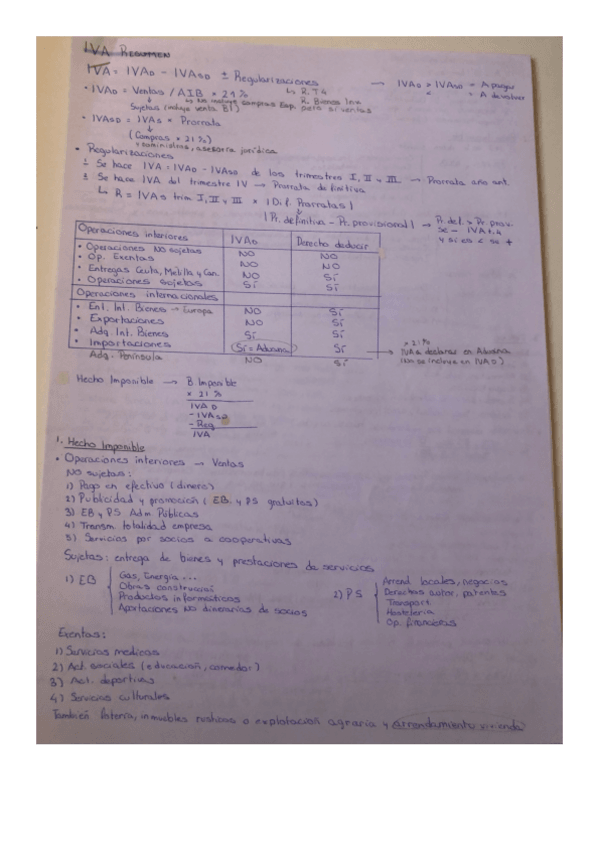 IVA RESUMEN
IVA = IVAD - IVASD ± Regularizaciones → IVAD > IVASD = A pagar
< = A devolver
• IVAD = Ventas / AIB × 21% ↳ R.T4
Sujetas (incluye venta BI) ↳ no incluye compras Esp. pero sí ventas R. Bienes Inv.
• IVASD = IVAS × Prorrata
(Compras × 21%)
y suministros, asesoría jurídica
• Regularizaciones
1 Se hace IVA = IVAD - IVASD de los trimestres I, II y III → Prorrata año ant.
Se hace IVA del trimestre IV → Prorrata definitiva
↳ R = IVAS trim. I, II y III × | Dif. Prorratas |
| Pr. definitiva - Pr. provisional | → Pr. def. > Pr. prov.
se - IVA t.4
y si es < se +
Operaciones interiores | IVAD | Derecho deducir
• Operaciones NO sujetas | NO | NO
• Op. Exentas | NO | NO
• Entregas Ceuta, Melilla y Can. | NO | NO
• Operaciones sujetas | SÍ | SÍ
Operaciones internacionales
• Ent. Int. Bienes → Europa | NO | SÍ
• Exportaciones | NO | SÍ
• Adq. Int. Bienes | SÍ | SÍ
• Importaciones | (SÍ = Aduana) | SÍ → × 21% IVAs declarar en Aduana
(No se incluye en IVAD)
Adq. Península | NO | SÍ
Hecho Imponible → B. Imponible
× 21%
IVAD
- IVASD
- Reg
IVA
1. Hecho Imponible
• Operaciones interiores → Ventas
NO sujetas:
1) Pago en efectivo (dinero)
2) Publicidad y promoción (EB. y PS gratuitas)
3) EB y PS Adm. Públicas
4) Transm. totalidad empresa
5) Servicios por socios a cooperativas
Sujetas: entrega de bienes y prestaciones de servicios
1) EB { Gas, Energía...
Obras construcción
Productos informáticos
Aportaciones NO dinerarias de socios
2) PS { Arrend. locales, negocios
Derechos autor, patentes
Transport.
Hostelería
Op. financieras
Exentas:
1) Servicios médicos
2) Act. sociales (educación, comedor)
3) Act. deportivas
4) Servicios culturales
También lotería, inmuebles rústicos o explotación agraria y arrendamiento vivienda